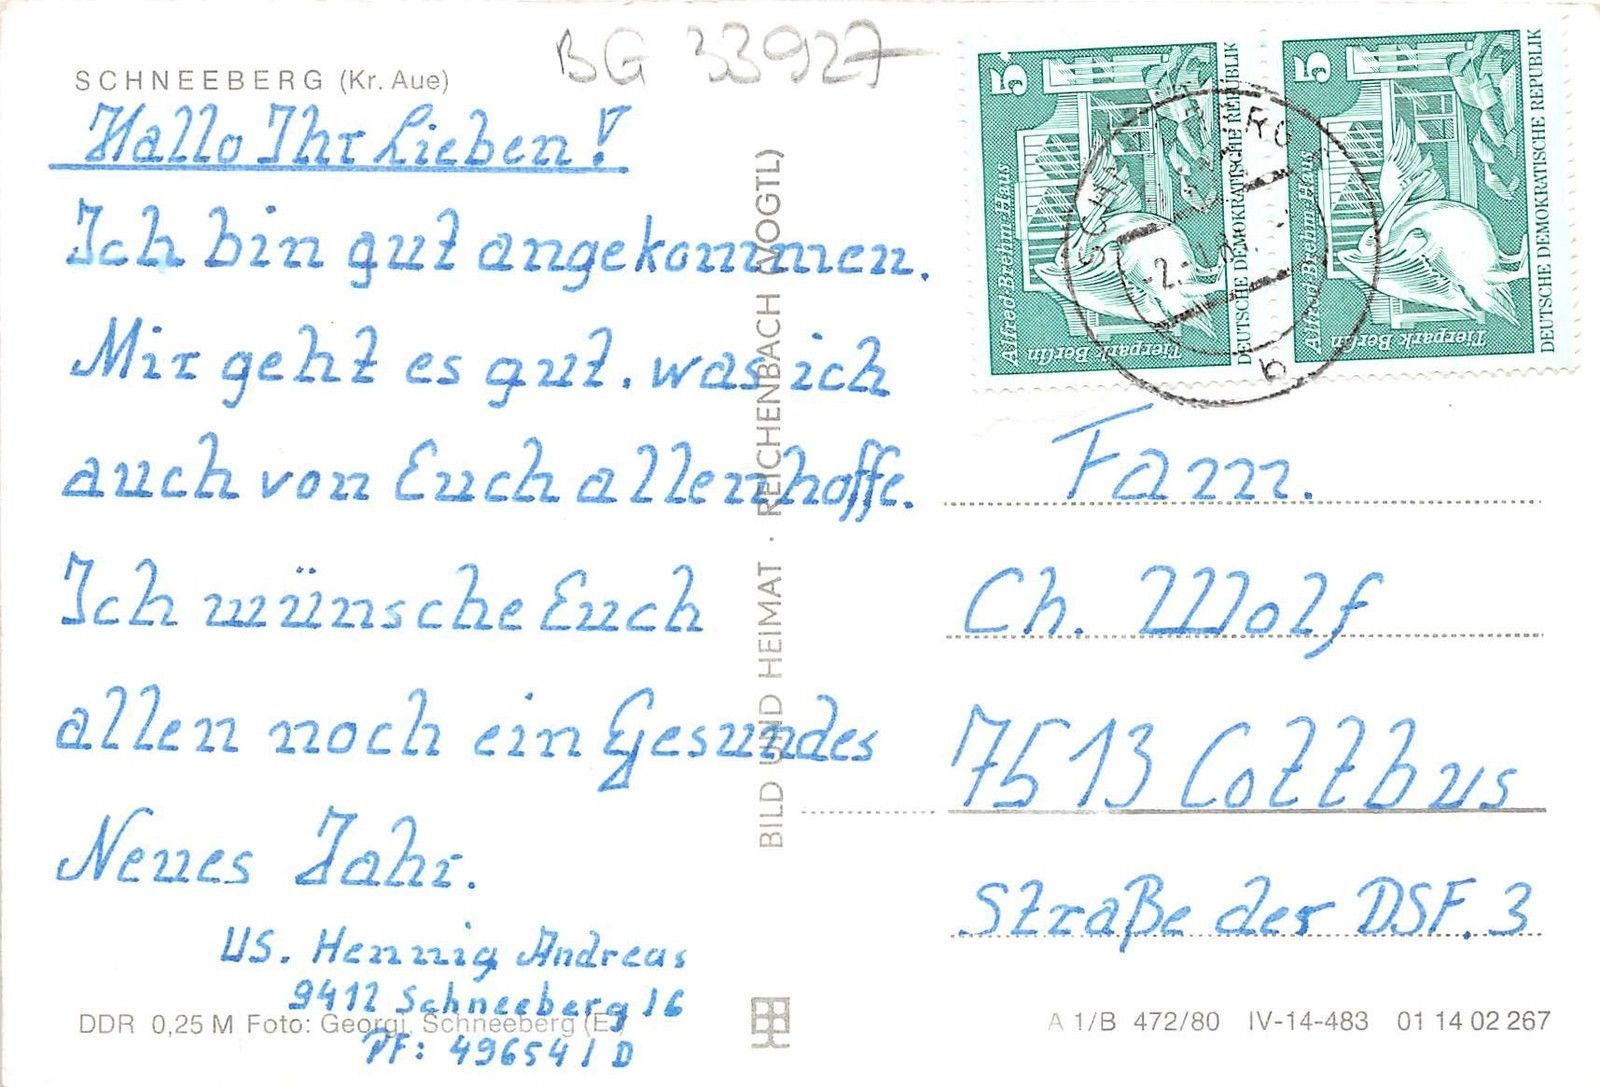 BG 33927
SCHNEEBERG (Kr. Aue)
Hallo Ihr Lieben!
Ich bin gut angekommen.
Mir geht es gut. was ich
auch von Euch allen hoffe.
Ich wünsche Euch
allen noch ein Gesundes
Neues Jahr.
US. Hennig Andreas
9412 Schneeberg 16
PF: 49654/D
DDR 0,25 M Foto: Georgi, Schneeberg (E.)
BILD UND HEIMAT · REICHENBACH (VOGTL)
5
Alfred Brehm Haus
Tierpark Berlin
DEUTSCHE DEMOKRATISCHE REPUBLIK
5
Alfred-Brehm-Haus
Tierpark Berlin
DEUTSCHE DEMOKRATISCHE REPUBLIK
SCHNEEBERG
b
Fam.
Ch. Wolf
7513 Cottbus
Straße der DSF. 3
A 1/B 472/80 IV-14-483 01 14 02 267